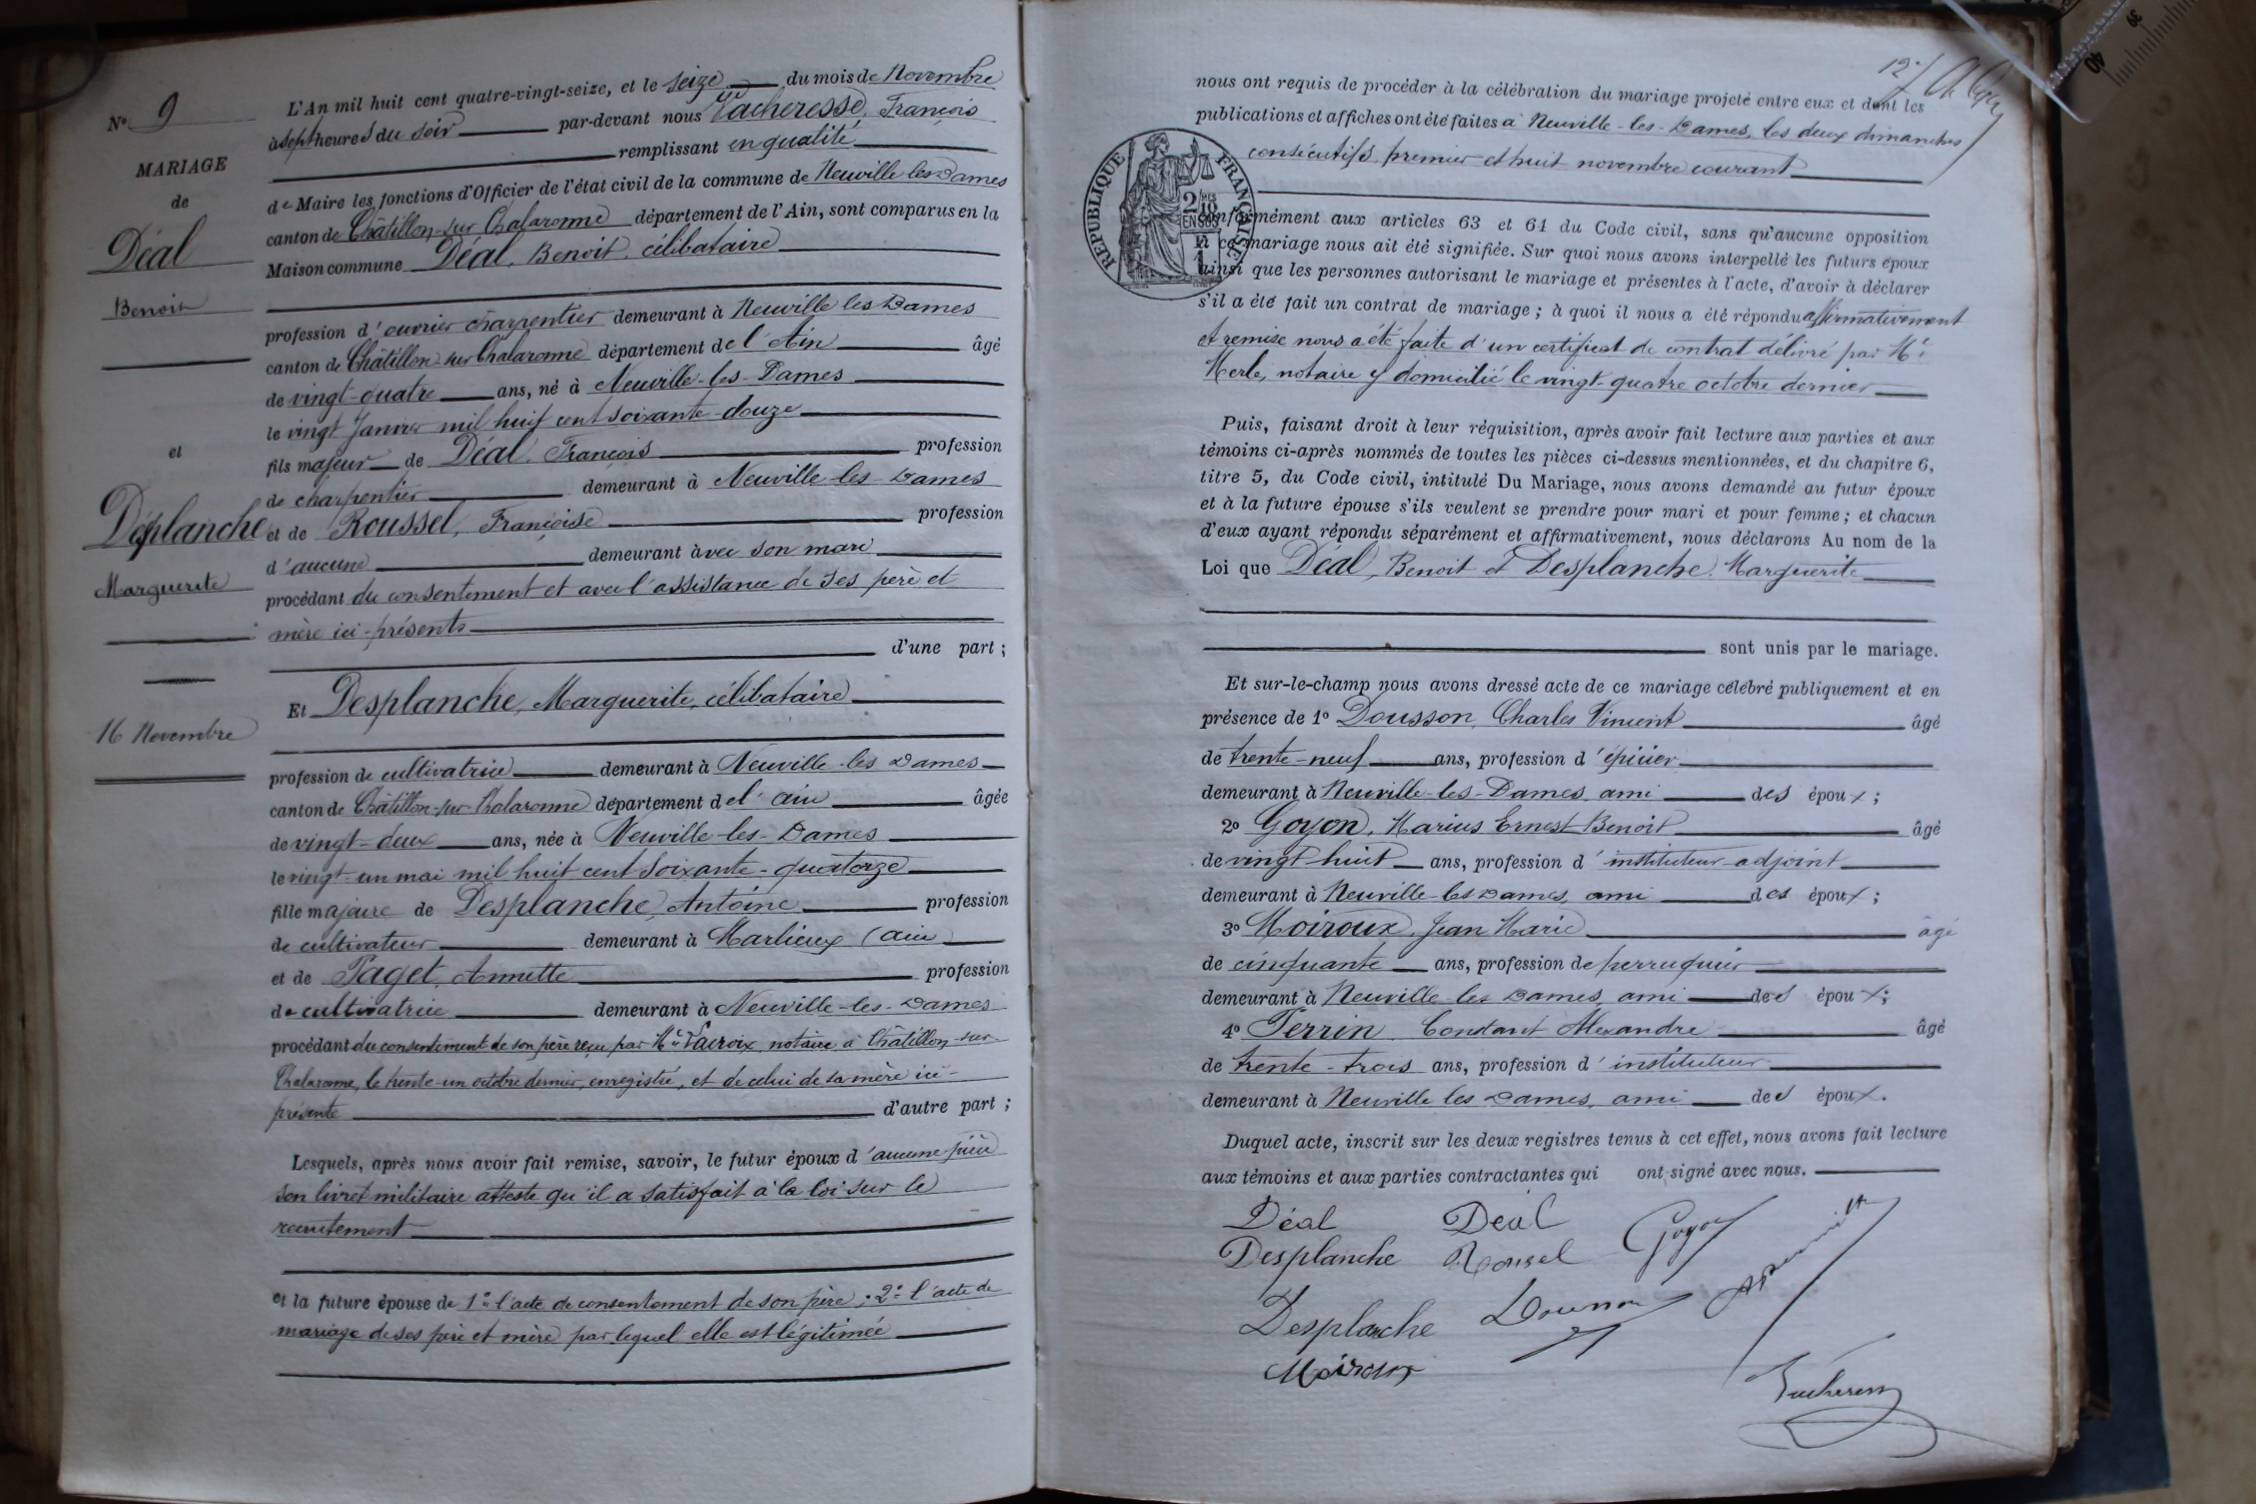 N° 9
MARIAGE
de
Déal
Benoit
et
Desplanche
Marguerite
16 Novembre
L'An mil huit cent quatre-vingt-seize, et le seize du mois de Novembre
à sept heures du soir par-devant nous Vacheresse, François
remplissant en qualité
de Maire les fonctions d'Officier de l'état civil de la commune de Neuville les Dames
canton de Châtillon-sur-Chalaronne département de l'Ain, sont comparus en la
Maison commune Déal, Benoit, célibataire
profession d'ouvrier charpentier demeurant à Neuville les Dames
canton de Châtillon-sur-Chalaronne département de l'Ain âgé
de vingt-quatre ans, né à Neuville-les-Dames
le vingt Janvier mil huit cent soixante-douze
fils majeur de Déal, François profession
de charpentier demeurant à Neuville-les-Dames
et de Roussel, Françoise profession
d'aucune demeurant avec son mari
procédant du consentement et avec l'assistance de ses père et
mère ici-présents
d'une part ;
Et Desplanche, Marguerite, célibataire
profession de cultivatrice demeurant à Neuville-les Dames
canton de Châtillon-sur-Chalaronne département de l'ain âgée
de vingt-deux ans, née à Neuville-les-Dames
le vingt-un mai mil huit cent soixante-quatorze
fille majeure de Desplanche, Antoine profession
de cultivateur demeurant à Marlieux (ain
et de Paget, Annette profession
de cultivatrice demeurant à Neuville-les-Dames
procédant du consentement de son père reçu par Me Lacroix, notaire à Châtillon-sur-
Chalaronne, le trente-un octobre dernier, enregistré, et de celui de sa mère ici-
présente d'autre part ;
Lesquels, après nous avoir fait remise, savoir, le futur époux d'aucune pièce
son livret militaire atteste qu'il a satisfait à la loi sur le
recrutement
et la future épouse de 1° l'acte de consentement de son père ; 2° l'acte de
mariage de ses père et mère par lequel elle est légitimée
12e
nous ont requis de procéder à la célébration du mariage projeté entre eux et dont les
publications et affiches ont été faites à Neuville-les-Dames, les deux dimanches
consécutifs premier et huit novembre courant
REPUBLIQUE FRANÇAISE
2/10 EN SUS
conformément aux articles 63 et 64 du Code civil, sans qu'aucune opposition
à ce mariage nous ait été signifiée. Sur quoi nous avons interpellé les futurs époux
ainsi que les personnes autorisant le mariage et présentes à l'acte, d'avoir à déclarer
s'il a été fait un contrat de mariage ; à quoi il nous a été répondu affirmativement
et remise nous a été faite d'un certificat de contrat délivré par Me
Merle, notaire y domicilié le vingt-quatre octobre dernier
Puis, faisant droit à leur réquisition, après avoir fait lecture aux parties et aux
témoins ci-après nommés de toutes les pièces ci-dessus mentionnées, et du chapitre 6,
titre 5, du Code civil, intitulé Du Mariage, nous avons demandé au futur époux
et à la future épouse s'ils veulent se prendre pour mari et pour femme ; et chacun
d'eux ayant répondu séparément et affirmativement, nous déclarons Au nom de la
Loi que Déal, Benoit et Desplanche, Marguerite
sont unis par le mariage.
Et sur-le-champ nous avons dressé acte de ce mariage célébré publiquement et en
présence de 1° Dousson, Charles Vincent âgé
de trente-neuf ans, profession d'épicier
demeurant à Neuville-les-Dames, ami des époux ;
2° Goyon, Marius Ernest Benoit âgé
de vingt huit ans, profession d'instituteur adjoint
demeurant à Neuville-les Dames, ami des époux ;
3° Moiroux, Jean Marie âgé
de cinquante ans, profession de perruquier
demeurant à Neuville-les Dames, ami des époux ;
4° Perrin, Constant Alexandre âgé
de trente-trois ans, profession d'instituteur
demeurant à Neuville les Dames, ami des époux.
Duquel acte, inscrit sur les deux registres tenus à cet effet, nous avons fait lecture
aux témoins et aux parties contractantes qui ont signé avec nous.
Déal Déal Goyon
Desplanche Roussel
Desplanche Dousson
Moiroux
Vacheresse